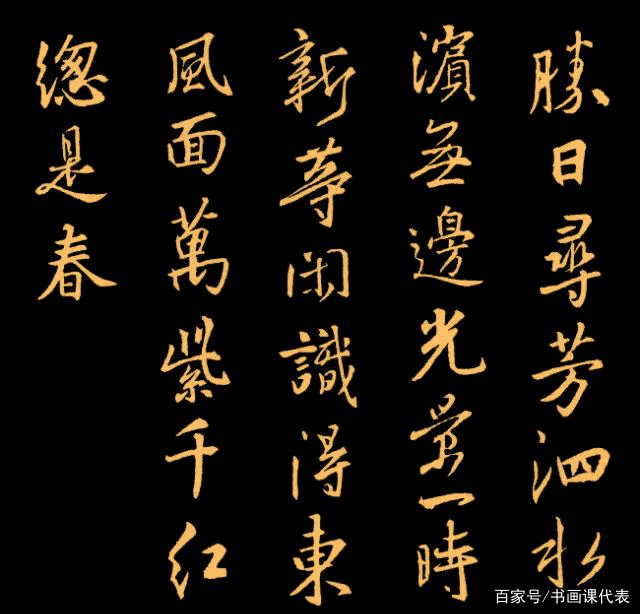 勝日尋芳泗水
濱無邊光景一時
新等閑識得東
風面萬紫千紅
總是春
百家号/书画课代表